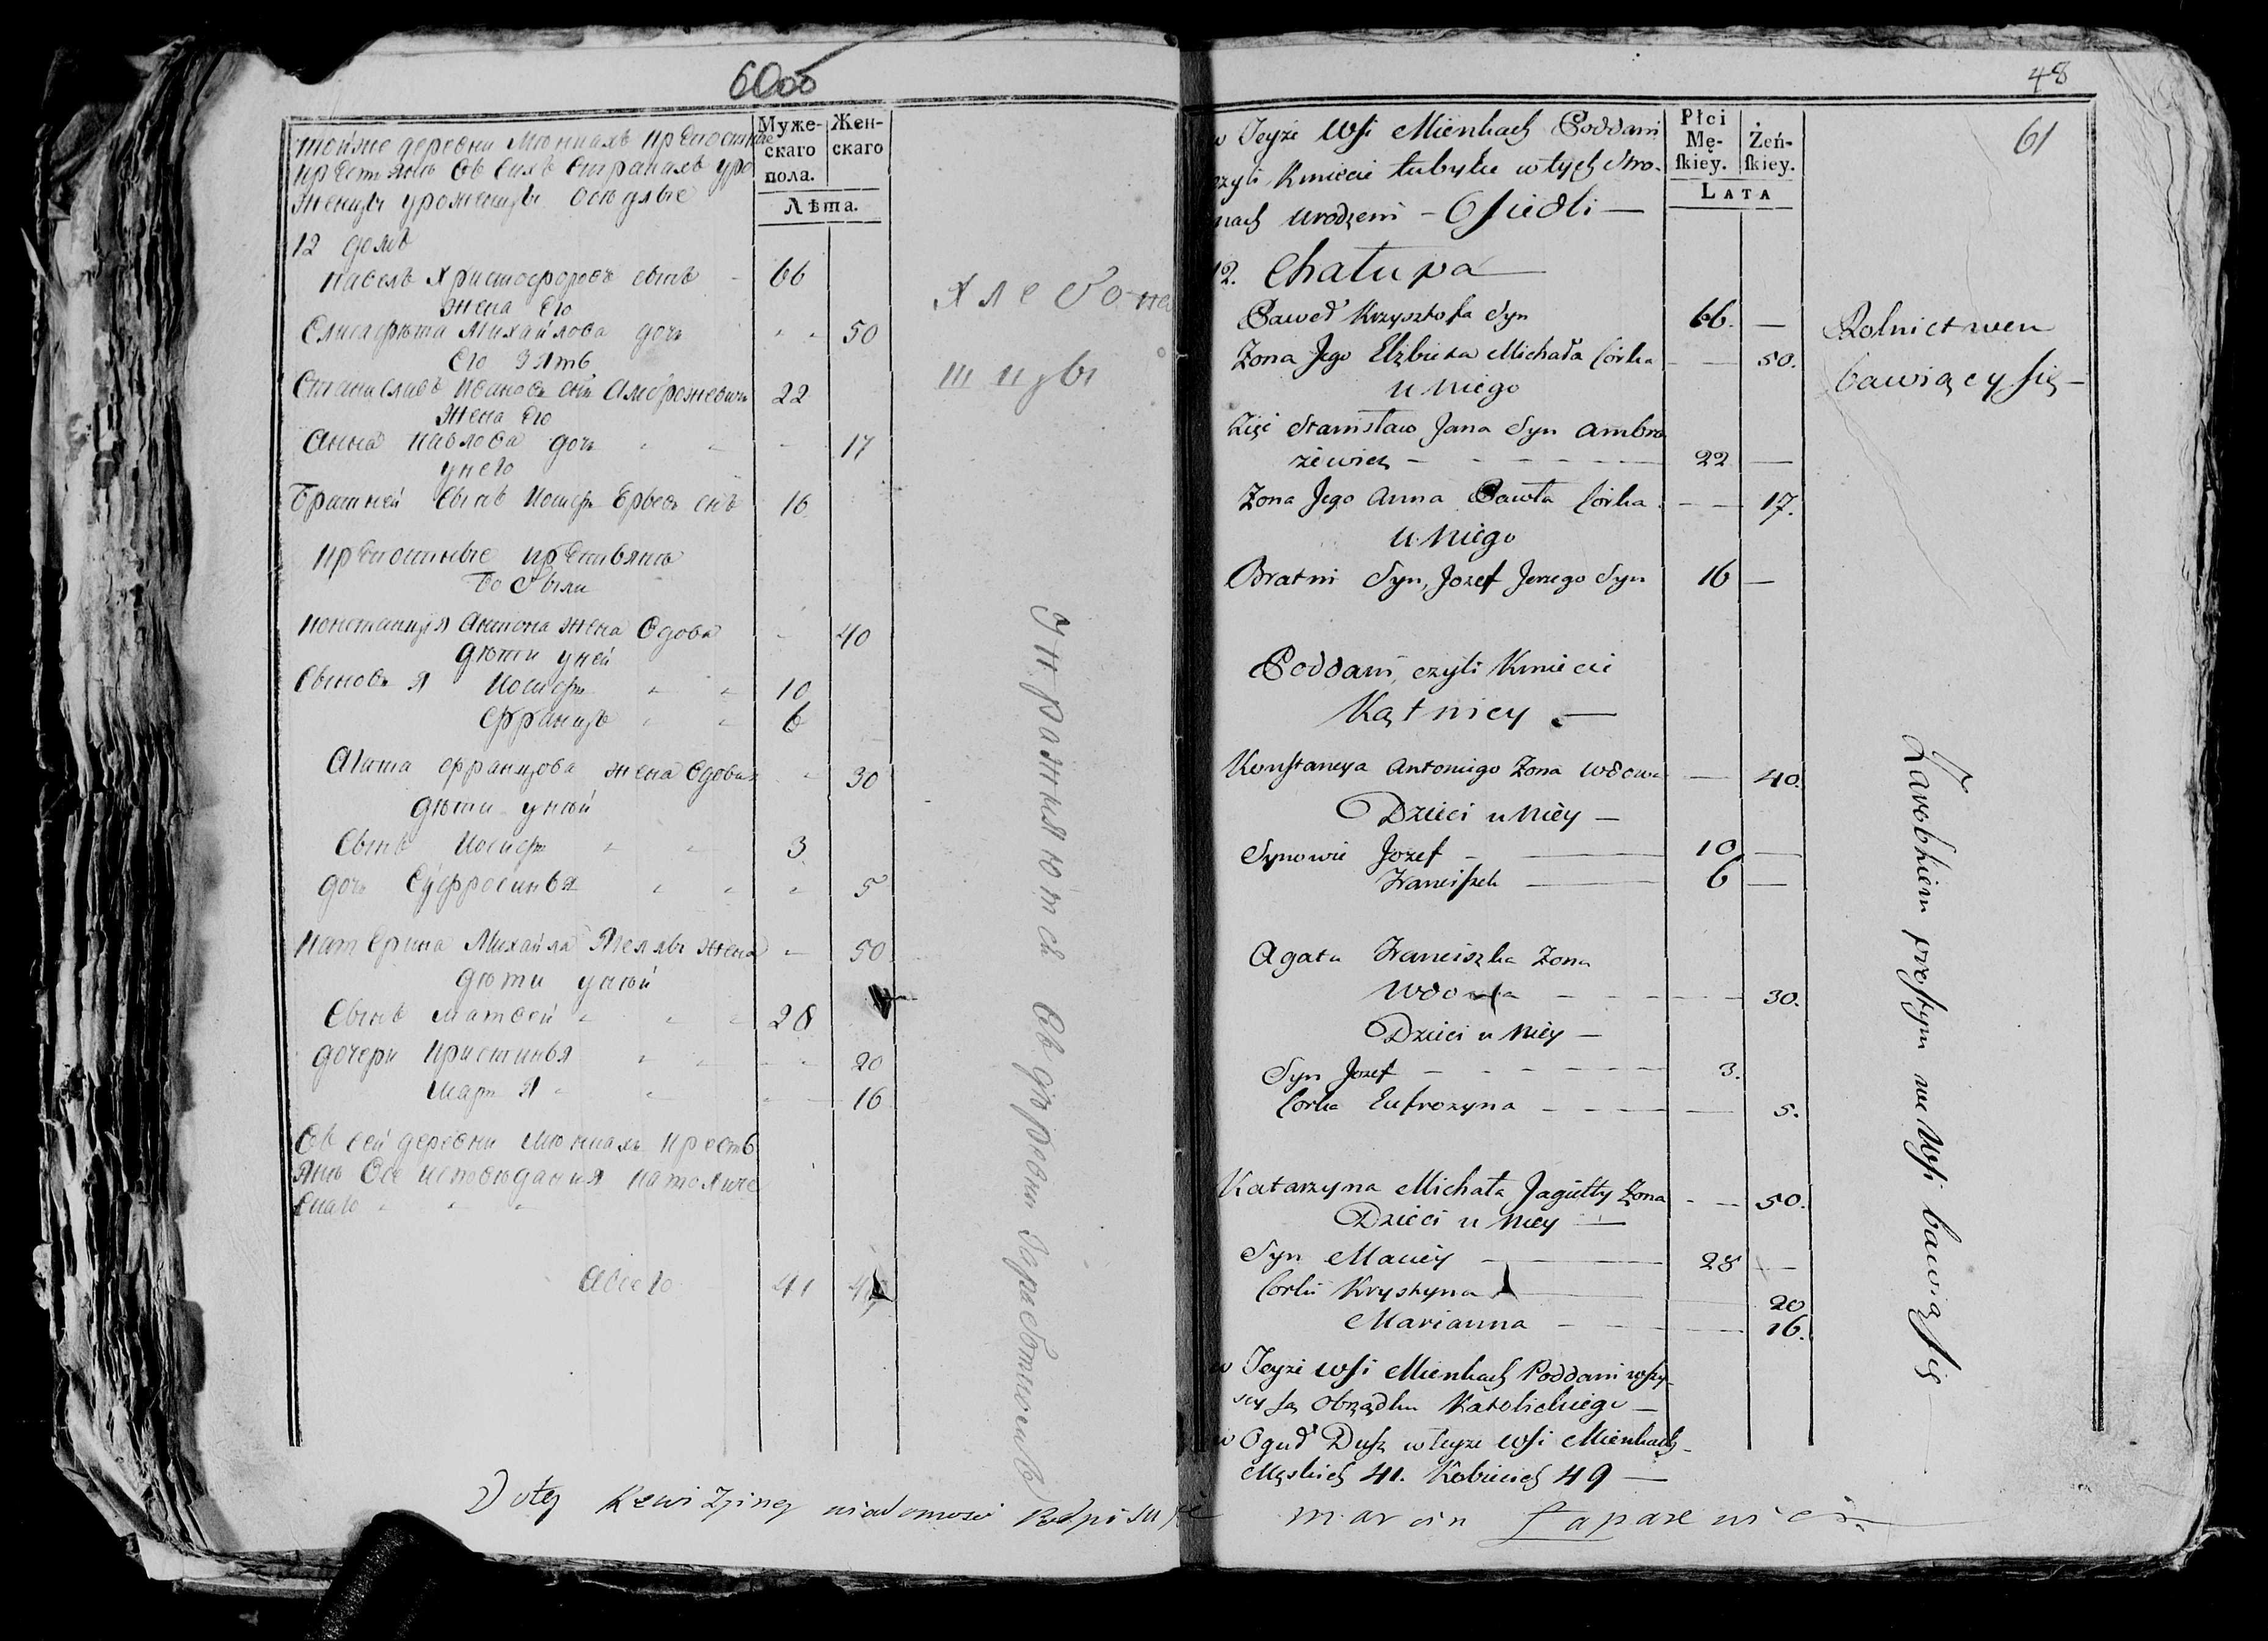 60об
тойже деревни Мюнкахъ крѣпостные
крестьяне въ сихъ странахъ уро
женцы уроженцы осѣдлые
Муже-
скаго
пола.
Жен-
скаго
Лѣта.
12 домъ
Павелъ Христофоровъ сынъ - 66
жена его
Елисавѣта Михайлова дочь 50
его зять
Станиславъ Ивановъ сынъ Амброжевичъ 22
жена его
Анна Павлова дочь 17
у него
Братней сынъ Иосифъ Ерьевъ снъ 16
крѣпостные крестьяне
бобыли
Констанція Антона жена вдова 40
дѣти у ней
Сыновья Иосифъ 10
Францъ 6
Агата Францова жена вдова 30
дѣти у ней
Сынъ Иосифъ 3
дочь Еуфросинья 5
Катерина Михайла Ягеллы жена 50
дѣти у ней
Сынъ Матвей 28
дочери Кристинья 20
Марья 16
Въ сей деревни Мюнкахъ кресть
яне все исповѣданія католиче
скаго
Всего 41 49
Хлебопа
шцы
Упражняются въ деревни
Do tey Rewizyiney wiadomosci Podpisuję
Marcin Łaparewicz
48
61
w Teyże Wsi Mienkach Poddani
czyli Kmiecie tubylce w tych Stro-
nach urodzeni - Osiedli -
Płci
Mę-
skiey.
Żeń-
skiey.
LATA
12. Chałupa
Paweł Krzysztofa Syn 66. —
Żona Jego Elżbieta Michała Córka — 50.
u niego
Zięć Stanisław Jana Syn Ambro
żewicz - 22 —
Żona Jego Anna Pawła Córka - — 17.
u niego
Bratni Syn, Jozef Jerzego Syn 16 —
Poddani, czyli Kmiecie
Kątnicy —
Konstancya Antoniego Żona Wdowa — 40.
Dzieci u niéy —
Synowie Jozef — 10 —
Franciszek — 6 —
Agata Franciszka Żona
Wdowa - 30.
Dzieci u niéy —
Syn Jozef - 3.
Córka Eufrozyna - — 5.
Katarzyna Michała Jagiełły Żona - — 50.
Dzieci u niey —
Syn Maciéy — 28 —
Córki Krystyna — 20
Marianna - — 16.
w Teyże Wsi Mienkach Poddani wszy-
scy są Obrządku Katolickiego —
w Oguł Dusz w teyże Wsi Mienkach
Męskich 41. Kobiecich 49 —
Rolnictwem
bawiący się —
Zarobkiem prostym we Wsi bawią się